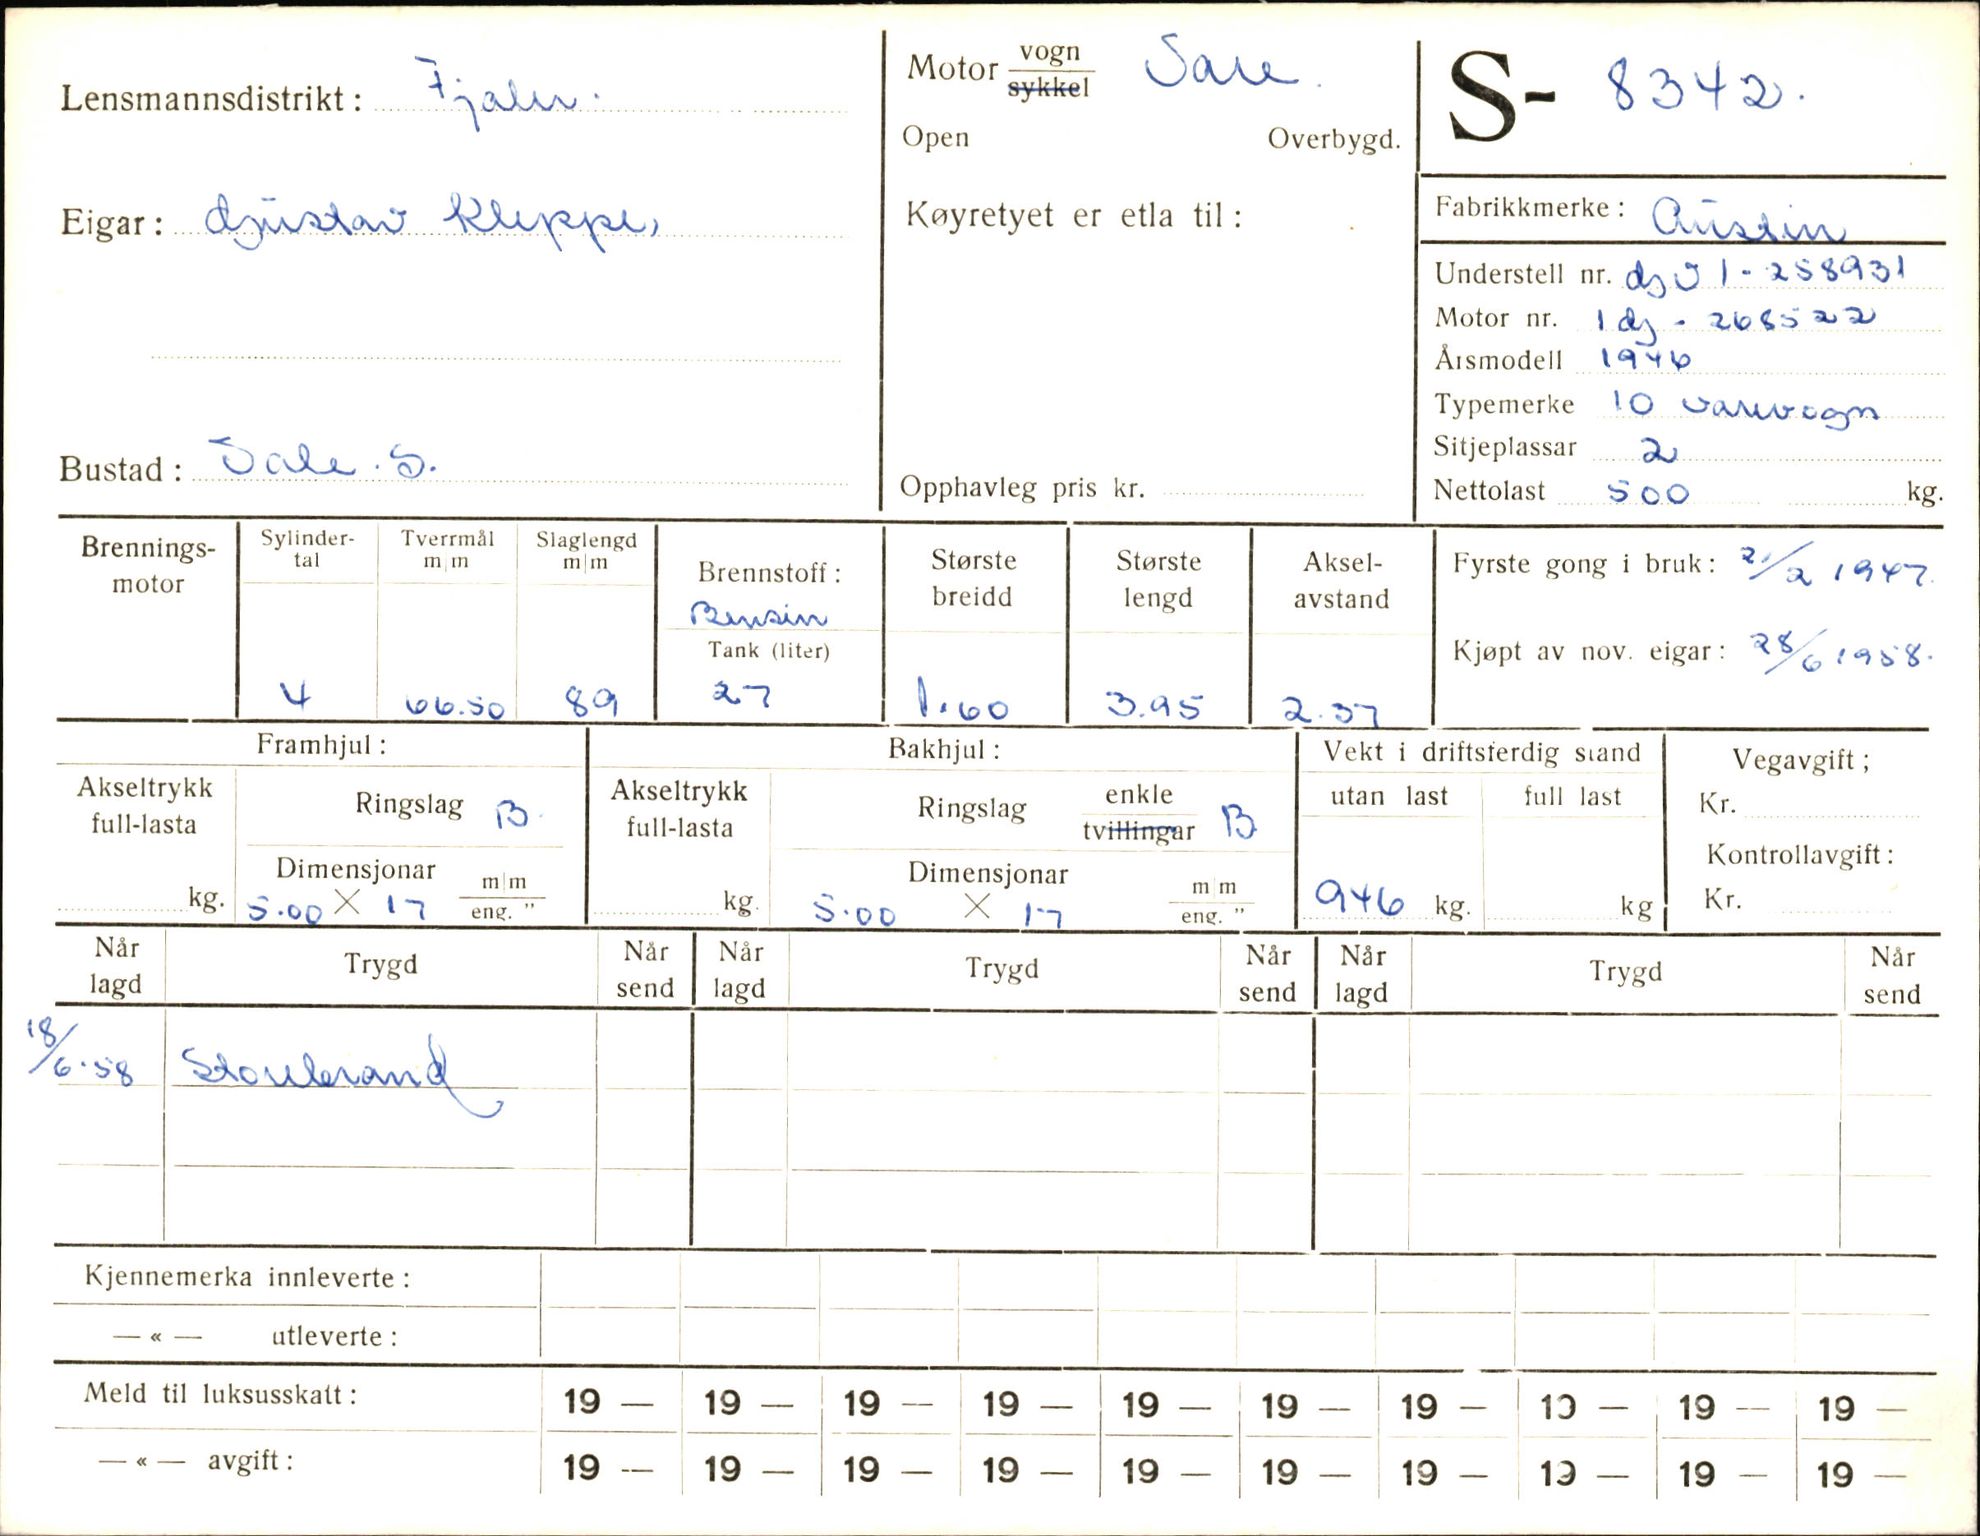 Lensmannsdistrikt: Fjaler.
Eigar: Gustav Kleppe,
Bustad: Dale. S.
Motor vogn
sykkel
Vare.
Open Overbygd.
Køyretyet er etla til:
Opphavleg pris kr.
S- 8342.
Fabrikkmerke: Austin
Understell nr. GV 1-258931
Motor nr. 1G - 268522
Årsmodell 1946
Typemerke 10 varevogn
Sitjeplassar 2
Nettolast 500 kg.
Brennings-
motor
Sylinder-
tal
4
Tverrmål
m|m
66.50
Slaglengd
m|m
89
Brennstoff:
Bensin
Tank (liter)
27
Største
breidd
1.60
Største
lengd
3.95
Aksel-
avstand
2.37
Fyrste gong i bruk: 21/2 1947.
Kjøpt av nov. eigar: 28/6 1958.
Framhjul:
Akseltrykk
full-lasta
kg.
Ringslag B.
Dimensjonar
5.00 X 17
m|m
eng. "
Bakhjul:
Akseltrykk
full-lasta
kg.
Ringslag
enkle
tvillingar
B
Dimensjonar
5.00 X 17
m|m
eng. "
Vekt i driftsferdig stand
utan last full last
946 kg. kg
Vegavgift;
Kr.
Kontrollavgift:
Kr.
Når
lagd
Trygd
Når
send
Når
lagd
Trygd
Når
send
Når
lagd
Trygd
Når
send
18/6.58 Storebrand
Kjennemerka innleverte:
— « — utleverte:
Meld til luksusskatt: 19 — 19 — 19 — 19 — 19 — 19 — 19 — 19 — 19 — 19 —
— « — avgift: 19 — 19 — 19 — 19 — 19 — 19 — 19 — 19 — 19 — 19 —